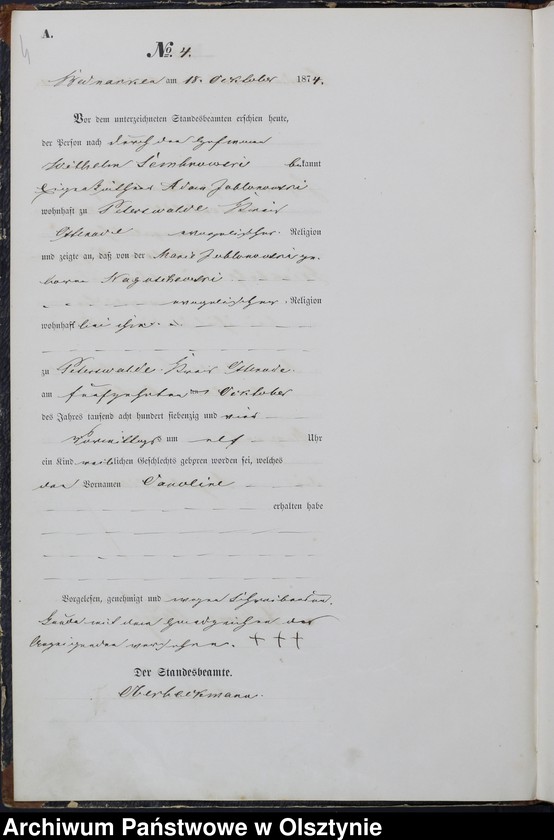 A.
4
No. 4.
am 18. Oktober 1874.
Vor dem unterzeichneten Standesbeamten erschien heute,
der Person nach durch den Hofmann
Wilhelm bekannt
Eigenkäthner Adam Jablonowski
wohnhaft zu Peterswalde Kreis
Osterode evangelischer Religion
und zeigte an, daß von der Marie Jablonowski ge-
borne
evangelischer Religion
wohnhaft bei ihm
zu Peterswalde Kreis Osterode
am fünfzehnten Oktober
des Jahres tausend acht hundert siebenzig und vier
Vormittags um elf Uhr
ein Kind weiblichen Geschlechts geboren worden sei, welches
den Vornamen Caroline
erhalten habe
Vorgelesen, genehmigt und wegen Schreibensun-
kunde mit dem Handzeichen des
Anzeigenden versehen. +++
Der Standesbeamte.
Oberbeckmann.
Archiwum Państwowe w Olsztynie